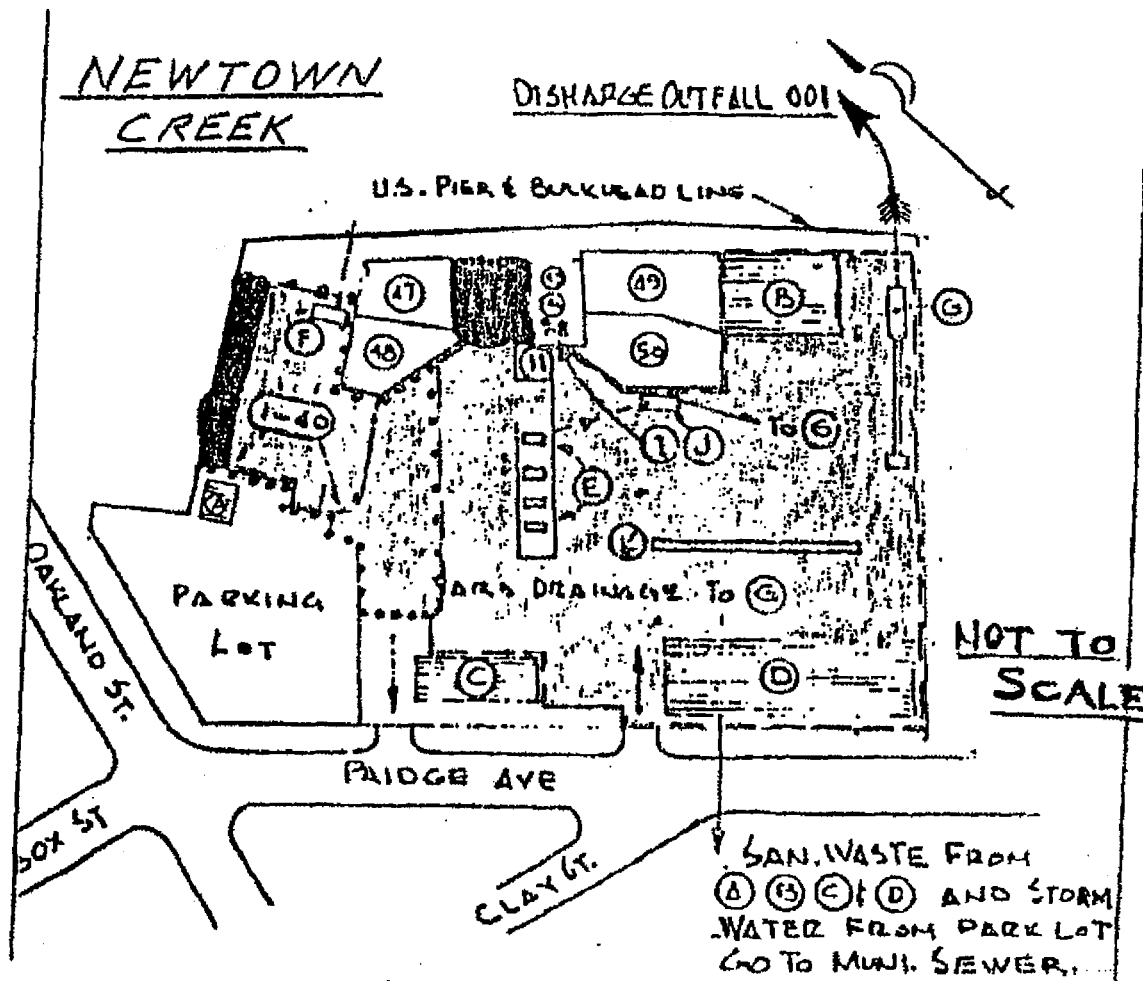 NEWTOWN
CREEK
DISHARGE OUTFALL 001
U.S. PIER & BULKHEAD LINE
47
48
49
50
B
G
F
H
I
J
TO G
E
K
A
PARKING
LOT
DRAINAGE TO G
C
D
NOT TO
SCALE
OAKLAND ST.
PAIDGE AVE
BOX ST
CLAY ST.
SAN. WASTE FROM
A B C & D AND STORM
WATER FROM PARK LOT
GO TO MUNI. SEWER.